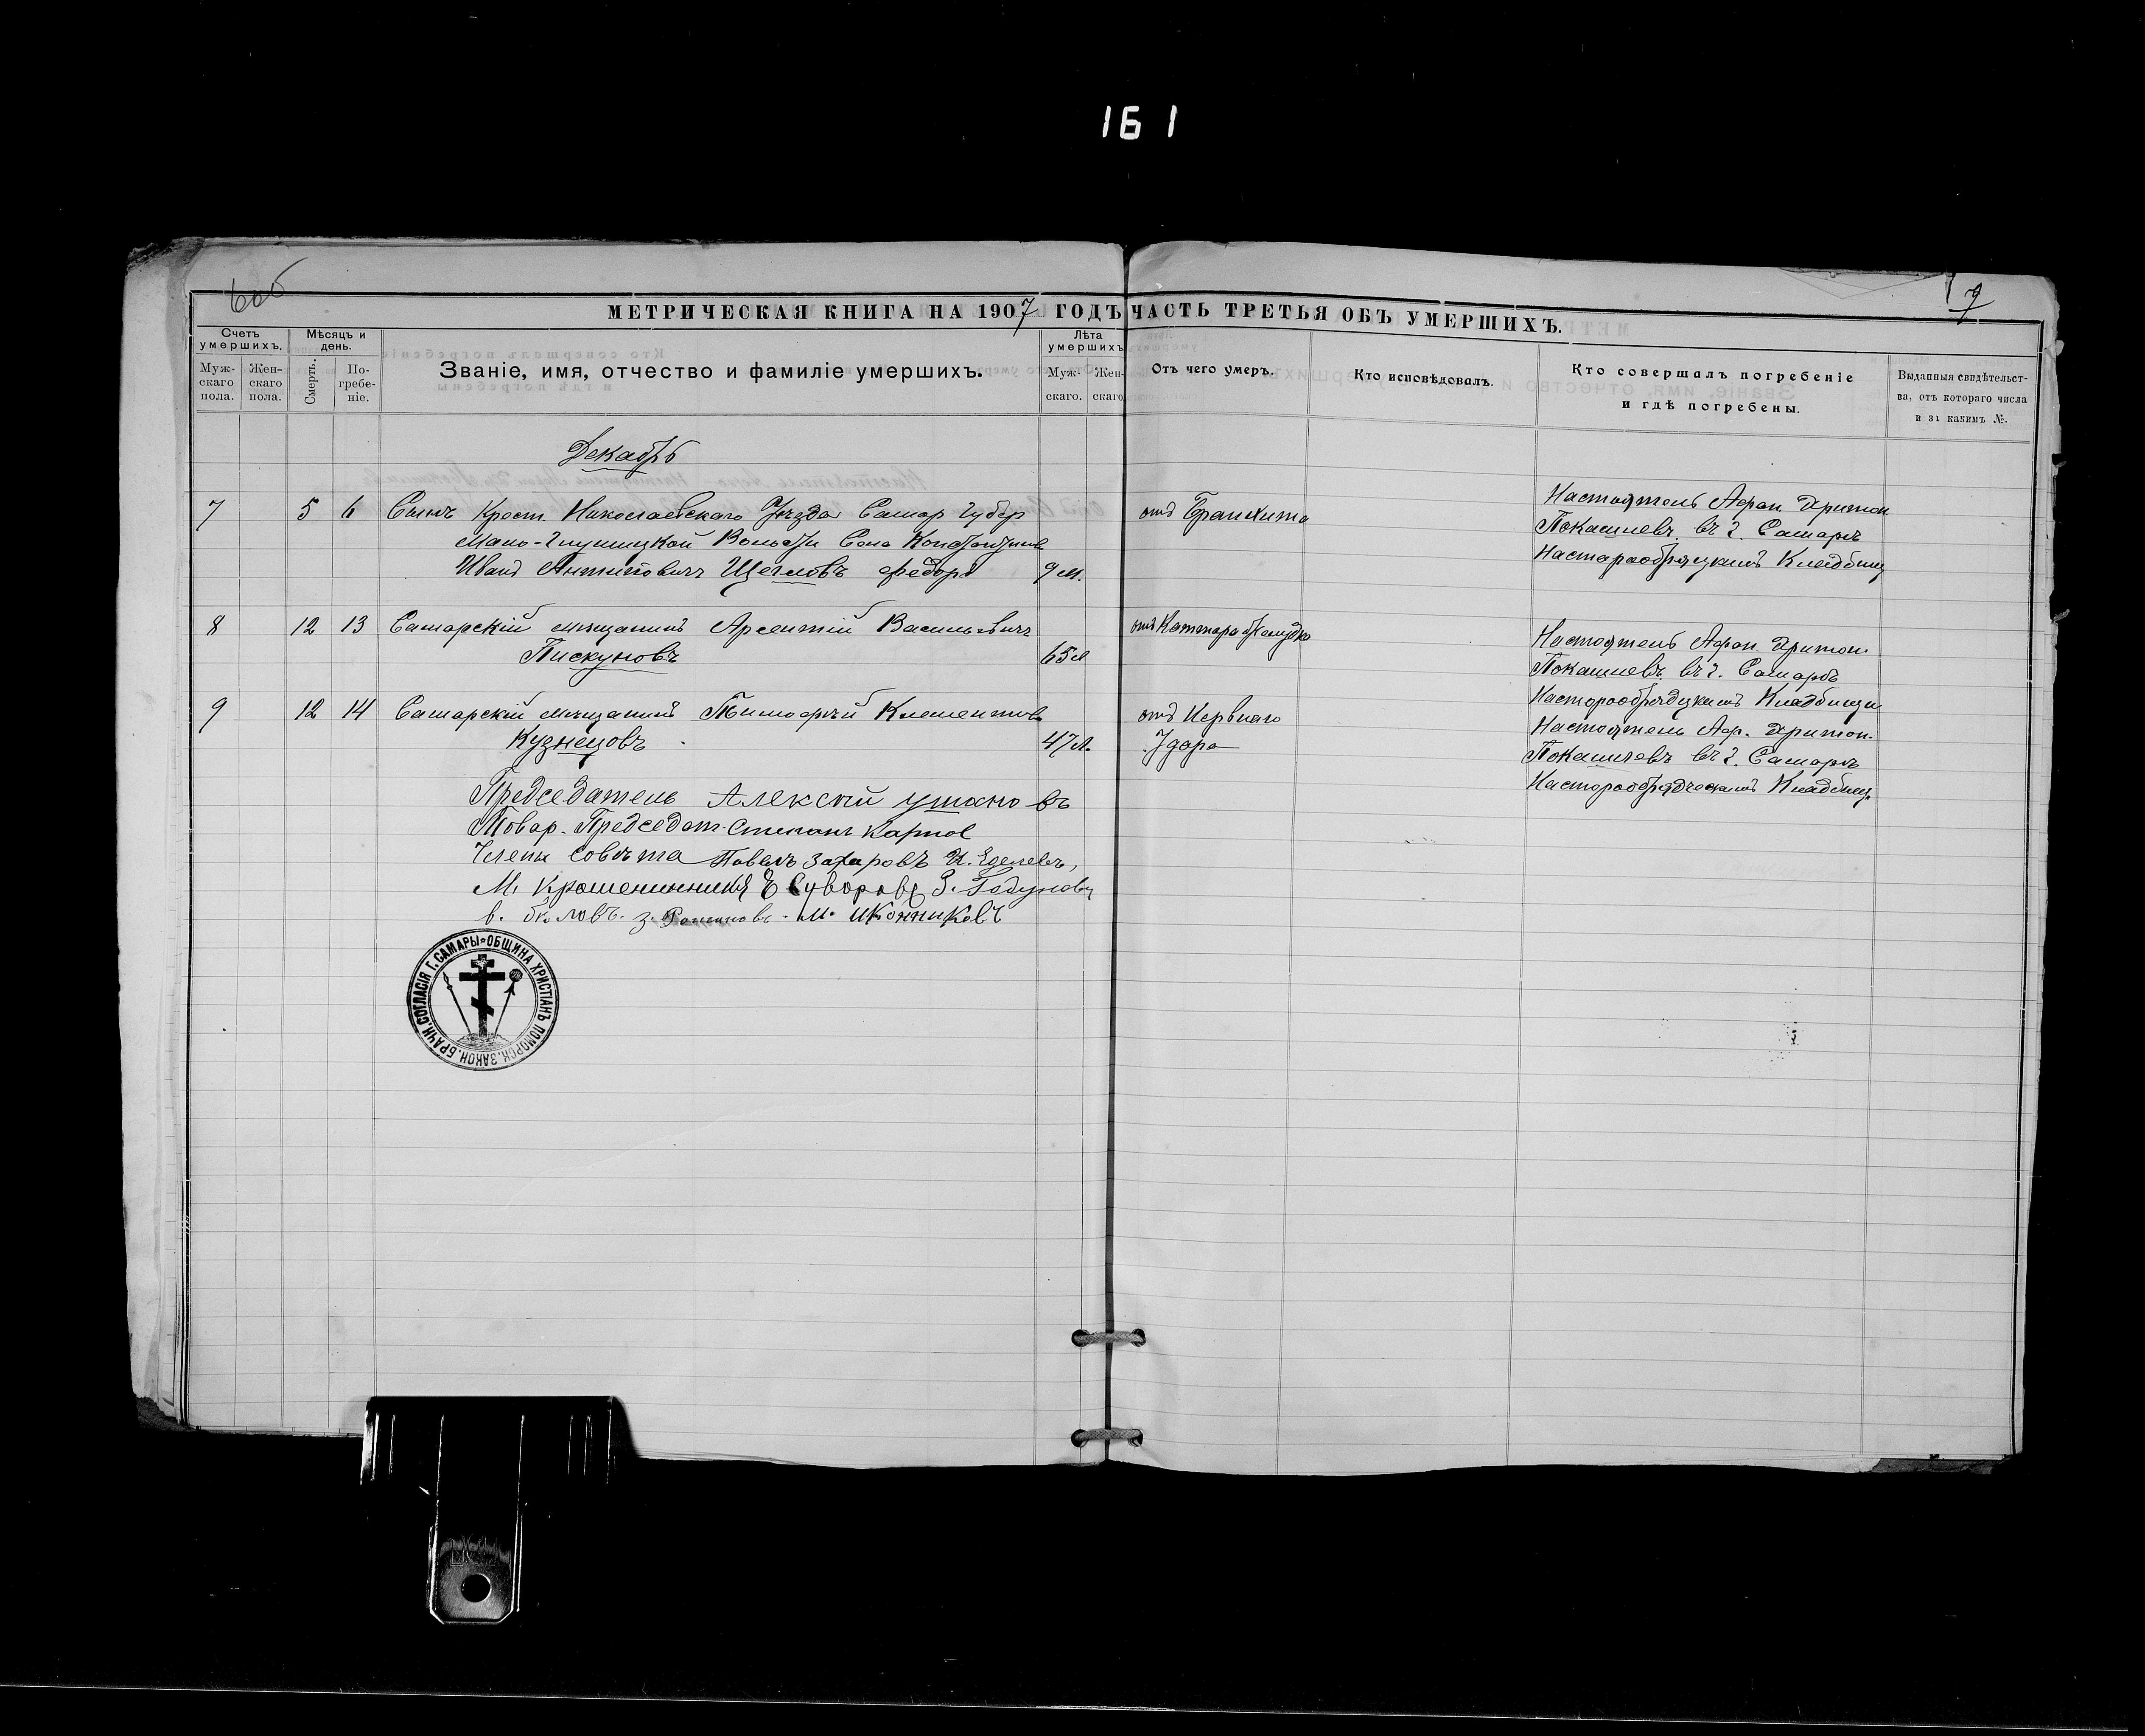 161
6об
7
МЕТРИЧЕСКАЯ КНИГА НА 1907 ГОДЪ ЧАСТЬ ТРЕТЬЯ ОБЪ УМЕРШИХЪ.
Счетъ умершихъ.
Мужскаго пола.
Женскаго пола.
Мѣсяцъ и день.
Смерть.
Погребеніе.
Званіе, имя, отчество и фамиліе умершихъ.
Лѣта умершихъ
Мужскаго.
Женскаго
Отъ чего умеръ.
Кто исповѣдовалъ.
Кто совершалъ погребеніе
и гдѣ погребены.
Выданныя свидѣтельст-
ва, отъ котораго числа
и за какимъ №.
Декабрь
7 5 6 Сынъ Крест. Николаевскаго Уѣзда Самар Губер
Мало-Глушицкой Волости Села
Иванъ Антиповичъ Щегловъ Федоръ 9 м.
отъ Бранхита
Настоятель Афан Еритон
Покашлевъ въ г. Самарѣ
Настарообрядцкимъ Кладбищ
8 12 13 Самарскій мѣщанинъ Арсентій Васильевичъ
Пискуновъ 65 л
отъ Каттара желудка
Настоятель Афан
Покашлевъ въ г. Самарѣ
Настарообрядцкимъ Кладбищи
9 12 14 Самарскій мѣщанинъ Тимофѣй Клементьев
Кузнецовъ 47 л.
отъ Нервнаго
Удара
Настоятель Аф.
Покашлевъ въ г. Самарѣ
Настарообрядческимъ Кладбищ.
Предсѣдатель Алексѣй Ушановъ
Товар. Председат. Степанъ Карпов
Члены Совѣта Павелъ Захаровъ
М. Крашенинников Е Суворовъ З. Годуновъ
М. Иконниковъ
ОБЩИНА ХРИСТІАНЪ ПОМОРСК. ЗАКОН. БРАЧН. СОГЛАСІЯ Г. САМАРЫ